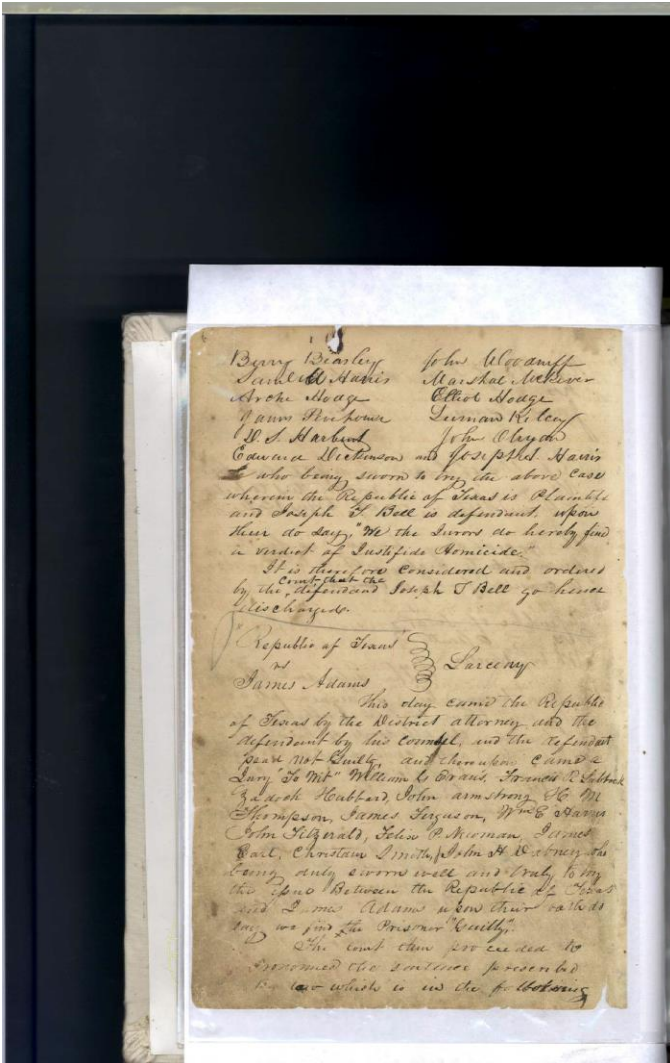 Berry Beasley John Woodruff
Saml M Harris Marshal McKever
Arche Hodge Elliot Hodge
James Leman Kiley
D. S. Harbert John
Edward Dickinson and Joseph Harris
who being sworn to try the above case
wherein the Republic of Texas is Plaintiff
and Joseph T. Bell is defendant, upon
their do say, "We the Jurors do hereby find
a verdict of Justifide Homicide."
It is therefore considered and ordered
court that the
by the, defendand Joseph T Bell go hence
discharged.
"Republic of Texas"
vs Larceny
James Adams
This day came the Republic
of Texas by the District attorney and the
defendant by his counsel, and the defendant
Not Guilty, and thereupon came a
Jury "To Wit" William G Evans, Francis R Lubbock
Zadock Hubbard, John armstrong, H M
Thompson, James Ferguson, Wm E Harris
John Fitzgerald, Felix P. Newman, James
Earl, Christain Smith, John H who
being duly sworn well and truly to try
the Between the Republic of Texas
and James Adams upon their oath do
say we find the Prisoner "Guilty".
The court then proceeded to
the sentence prescribed
by law which is in the following